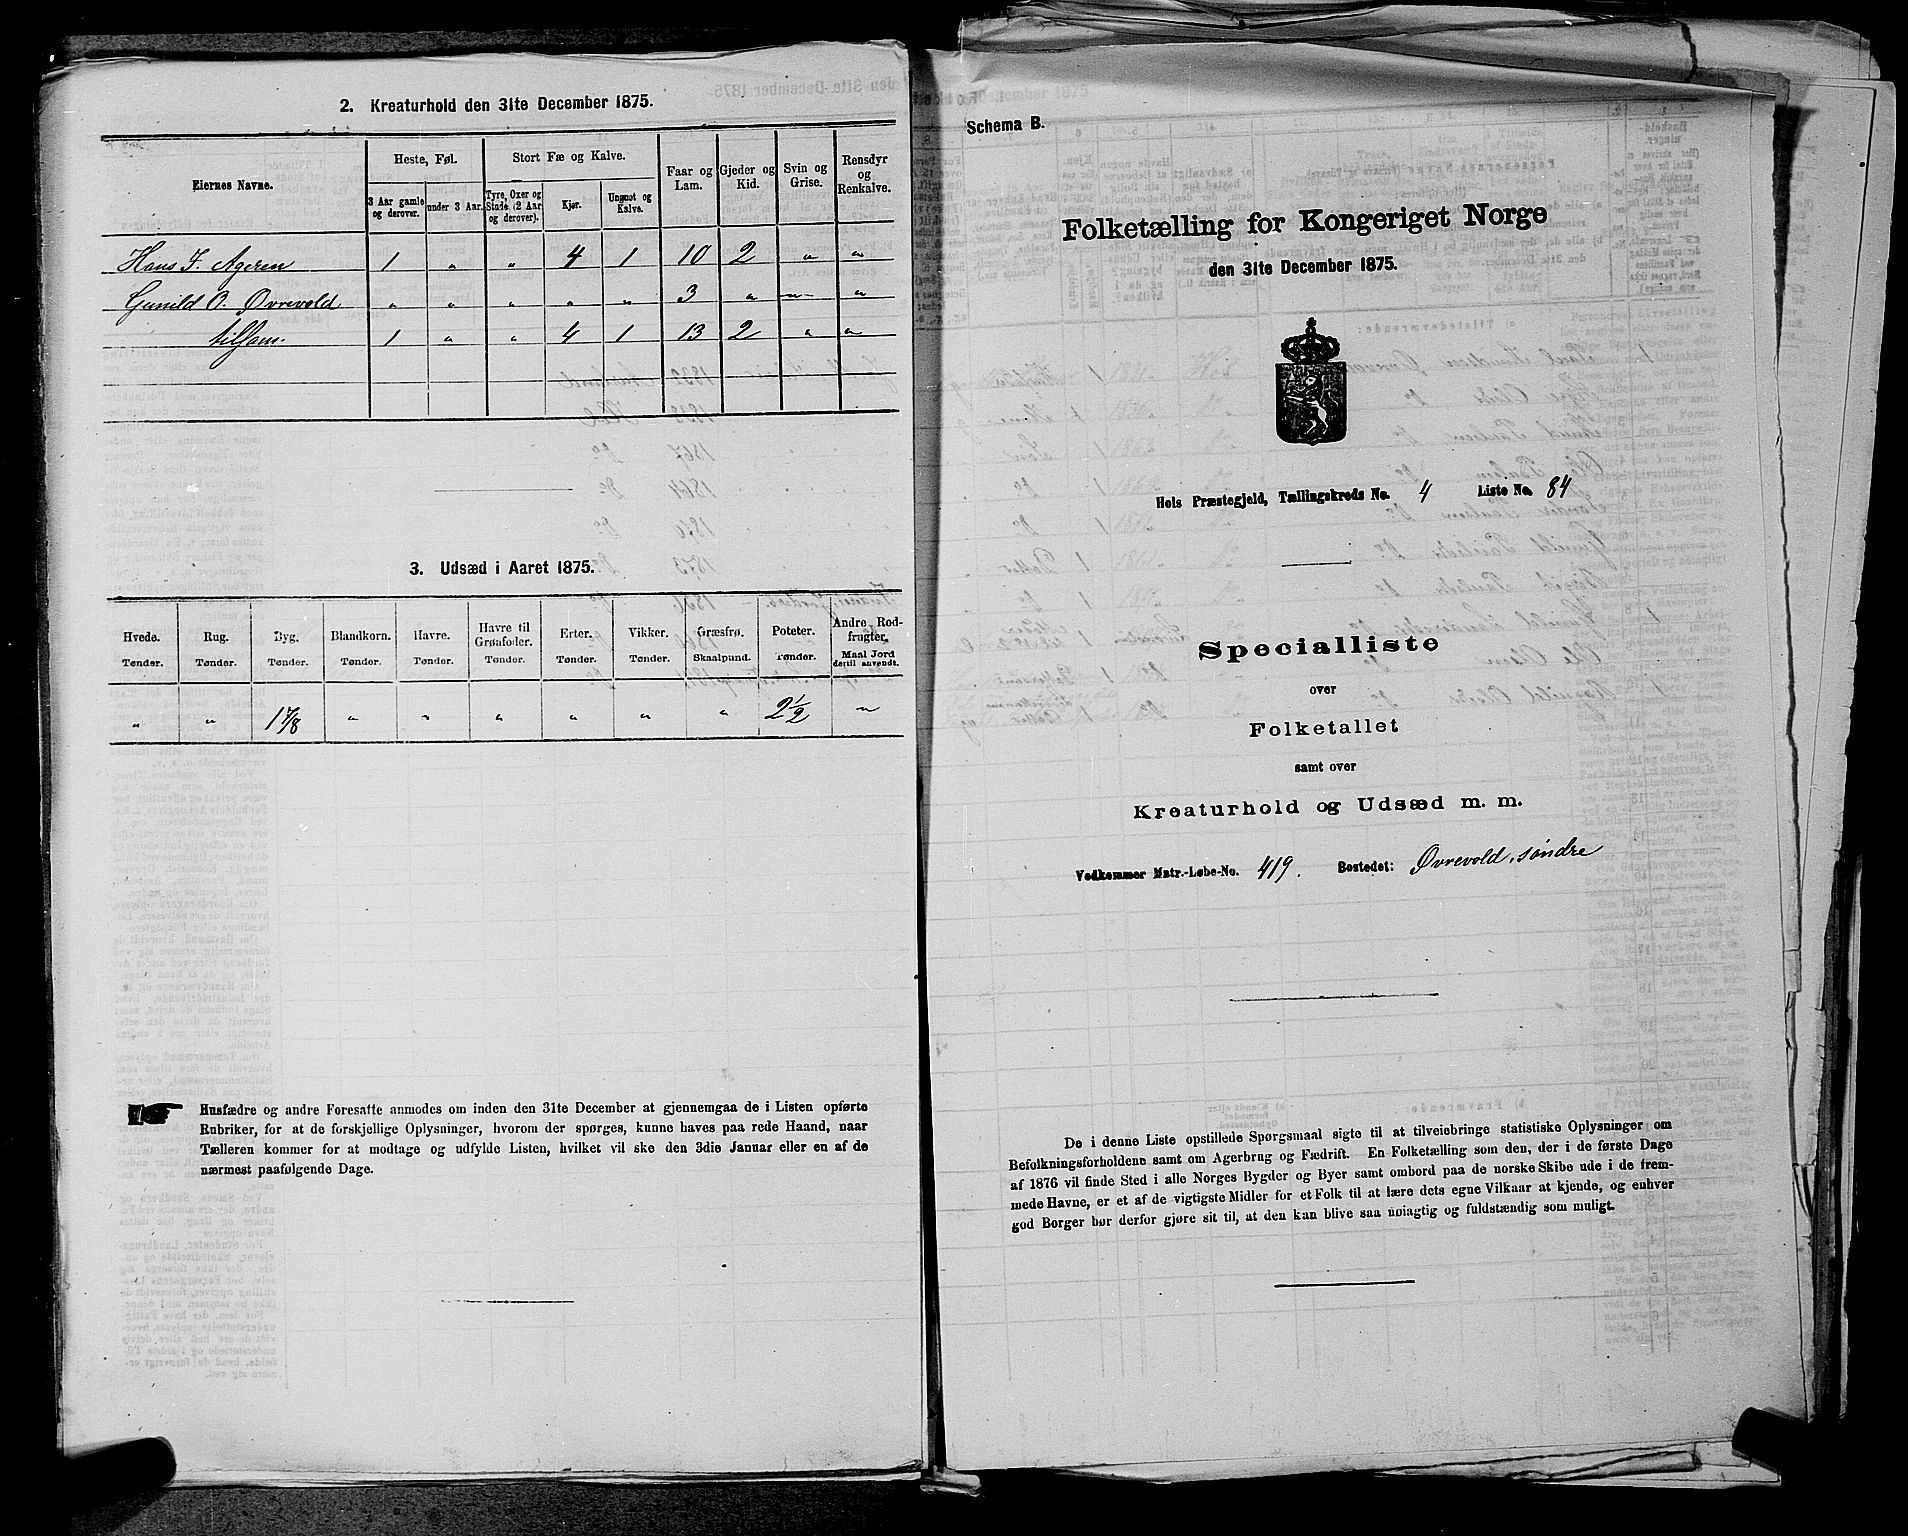 2. Kreaturhold den 31te December 1875.
Eiernes Navne. Heste, Føl. Stort Fæ og Kalve. Faar og Lam. Gjeder og Kid. Svin og Grise. Rensdyr og Renkalve.
3 Aar gamle og derover. under 3 Aar. Tyre, Oxer og Stude (2 Aar og derover). Kjør. Ungnøt og Kalve.
Hans J. Ageren 1 " " 4 1 10 2 " "
Gunild O. Øvrevold " " " " " 3 " " "
tilsam. 1 " " 4 1 13 2 " "
3. Udsæd i Aaret 1875.
Hvede. Rug. Byg. Blandkorn. Havre. Havre til Grønfoder. Erter. Vikker. Græsfrø. Poteter. Andre Rodfrugter.
Tønder. Tønder. Tønder. Tønder. Tønder. Tønder. Tønder. Tønder. Skaalpund. Tønder. Maal Jord dertil anvendt.
" " 1 7/8 " " " " " " 2 1/2 "
Husfædre og andre Foresatte anmodes om inden den 31te December at gjennemgaa de i Listen opførte
Rubriker, for at de forskjellige Oplysninger, hvorom der spørges, kunne haves paa rede Haand, naar
Tælleren kommer for at modtage og udfylde Listen, hvilket vil ske den 3die Januar eller en af de
nærmest paafølgende Dage.
Schema B.
Folketælling for Kongeriget Norge
den 31te December 1875.
Hols Præstegjeld, Tællingskreds No. 4 Liste No. 84
Specialliste
over
Folketallet
samt over
Kreaturhold og Udsæd m. m.
Vedkommer Matr.-Løbe-No. 419. Bostedet: Øvrevold, søndre
De i denne Liste opstillede Spørgsmaal sigte til at tilveiebringe statistiske Oplysninger om
Befolkningsforholdene samt om Agerbrug og Fædrift. En Folketælling som den, der i de første Dage
af 1876 vil finde Sted i alle Norges Bygder og Byer samt ombord paa de norske Skibe ude i de frem-
mede Havne, er et af de vigtigste Midler for et Folk til at lære dets egne Vilkaar at kjende, og enhver
god Borger bør derfor gjøre sit til, at den kan blive saa nøiagtig og fuldstændig som muligt.